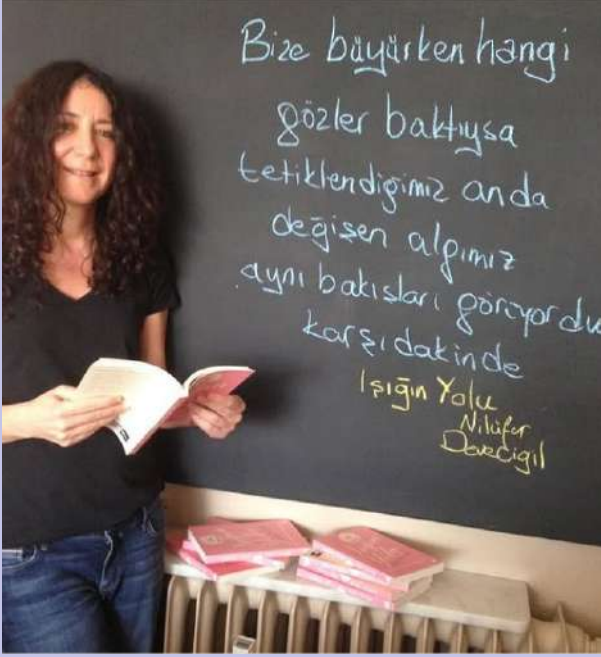 Bize büyürken hangi
gözler baktıysa
tetiklendiğimiz anda
değişen algımız
aynı bakışları görüyordu
karşıdakinde
Işığın Yolu
Nilüfer
Devecigil